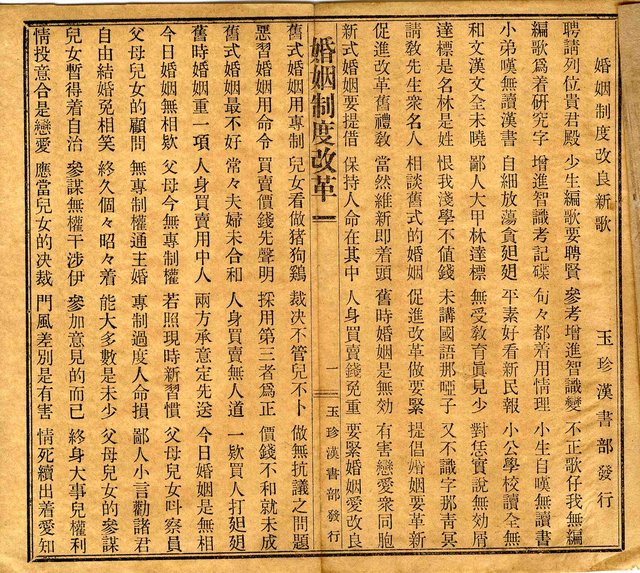 婚姻制度改良新歌 玉珍漢書部發行
聘請列位貴君殿 少生編歌要聘賢 參考增進智識變 不正歌仔我無編
編歌為着研究字 增進智識考記碟 句々都着用情理 小生自嘆無讀書
小弟嘆無讀漢書 自細放蕩貪廻廻 平素好看新民報 小公學校讀全無
和文漢文全未曉 鄙人大甲林達標 無受教育眞見少 對恁實說無効屑
達標是名林是姓 恨我淺學不值錢 未講國語那啞子 又不識字那靑冥
請敎先生衆名人 相談舊式的婚姻 促進改革做要緊 提倡婚姻要革新
促進改革舊禮敎 當然維新即着頭 舊時婚姻是無効 有害戀愛衆同胞
新式婚姻要提借 保持人命在其中 人身買賣錢免重 要緊婚姻愛改良
婚姻制度改革 一 一 玉珍漢書部發行
舊式婚姻用專制 兒女看做猪狗鷄 裁决不管兒不卜 做無抗議之問題
惡習婚姻用命令 買賣價錢先聲明 採用第三者為正 價錢不和就未成
舊式婚姻最不好 常々夫婦未合和 人身買賣無人道 一欵買人打廻廻
舊時婚姻重一項 人身買賣用中人 兩方承意定先送 今日婚姻是無相
今日婚姻無相欵 父母今無專制權 若照現時新習慣 父母兒女呌察員
父母兒女的顧問 無專制權通主婚 專制過度人命損 鄙人小言勸諸君
自由結婚免相笑 終久個々昭々着 能大多數是未少 父母兒女的參謀
兒女暫得着自治 參謀無權干涉伊 參加意見的而已 終身大事兒權利
情投意合是戀愛 應當兒女的决裁 門風差別是有害 情死續出着愛知